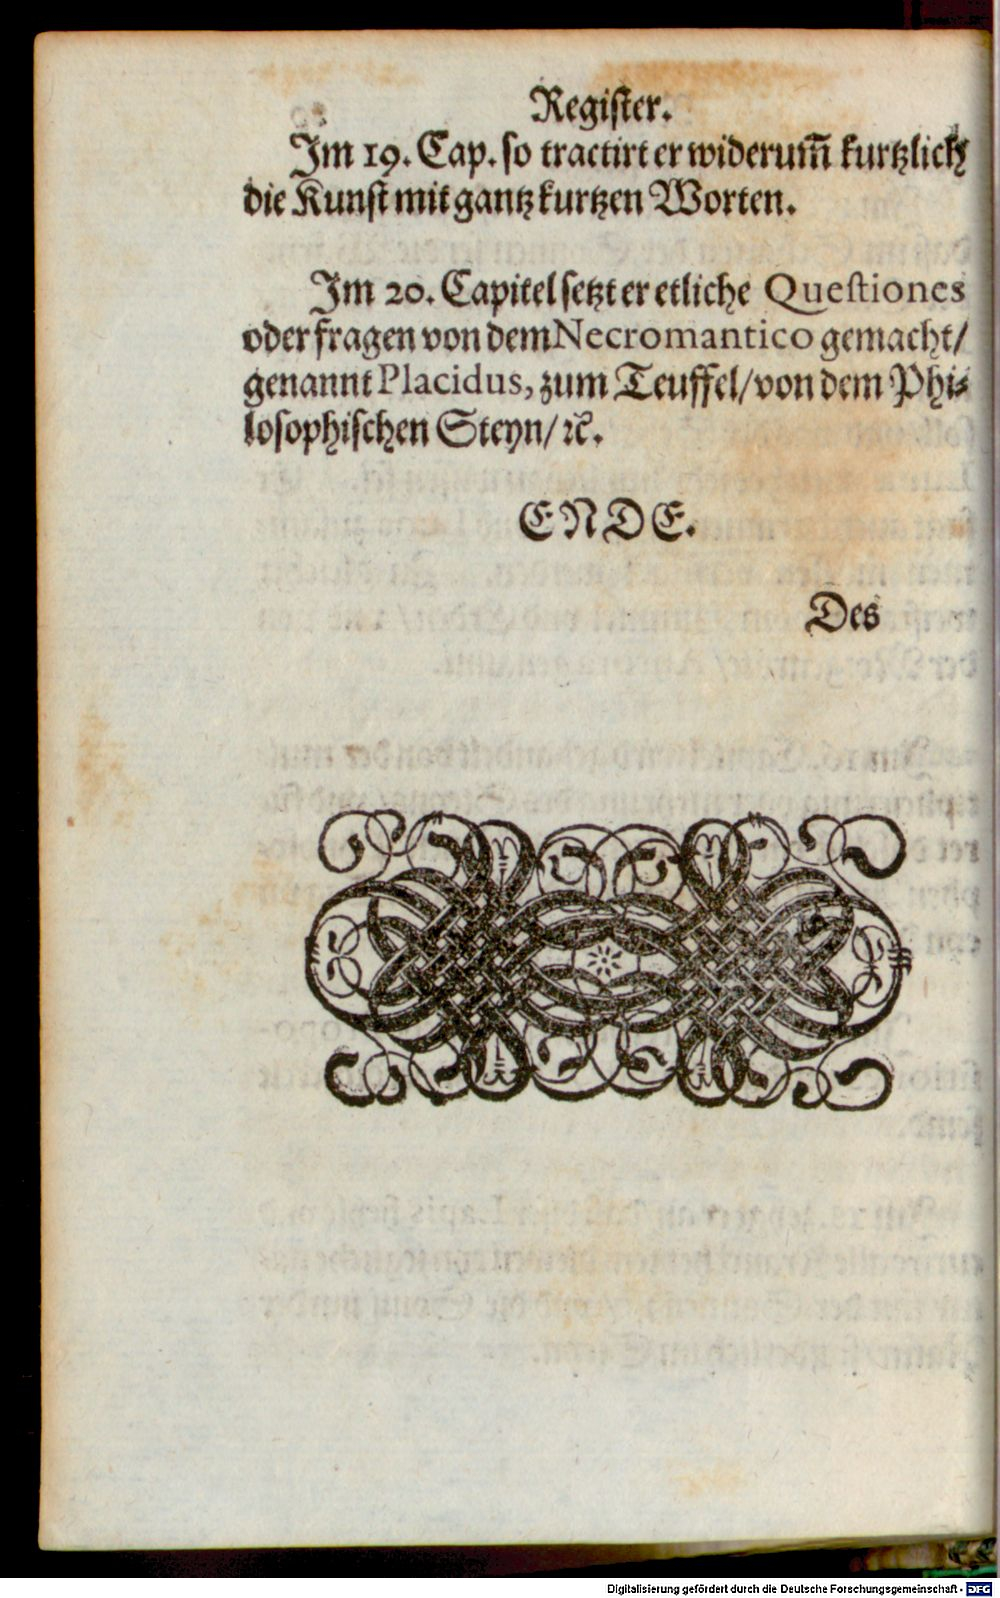 Register.
Im 19. Cap. so tractirt er widerum̃ kurtzlich
die Kunst mit gantz kurtzen Worten.
Im 20. Capitel setzt er etliche Questiones
oder fragen von dem Necromantico gemacht/
genannt Placidus, zum Teuffel/ von dem Phi⸗
losophischen Steyn/ ꝛc̃.
ENDE.
Des
Digitalisierung gefördert durch die Deutsche Forschungsgemeinschaft - DFG